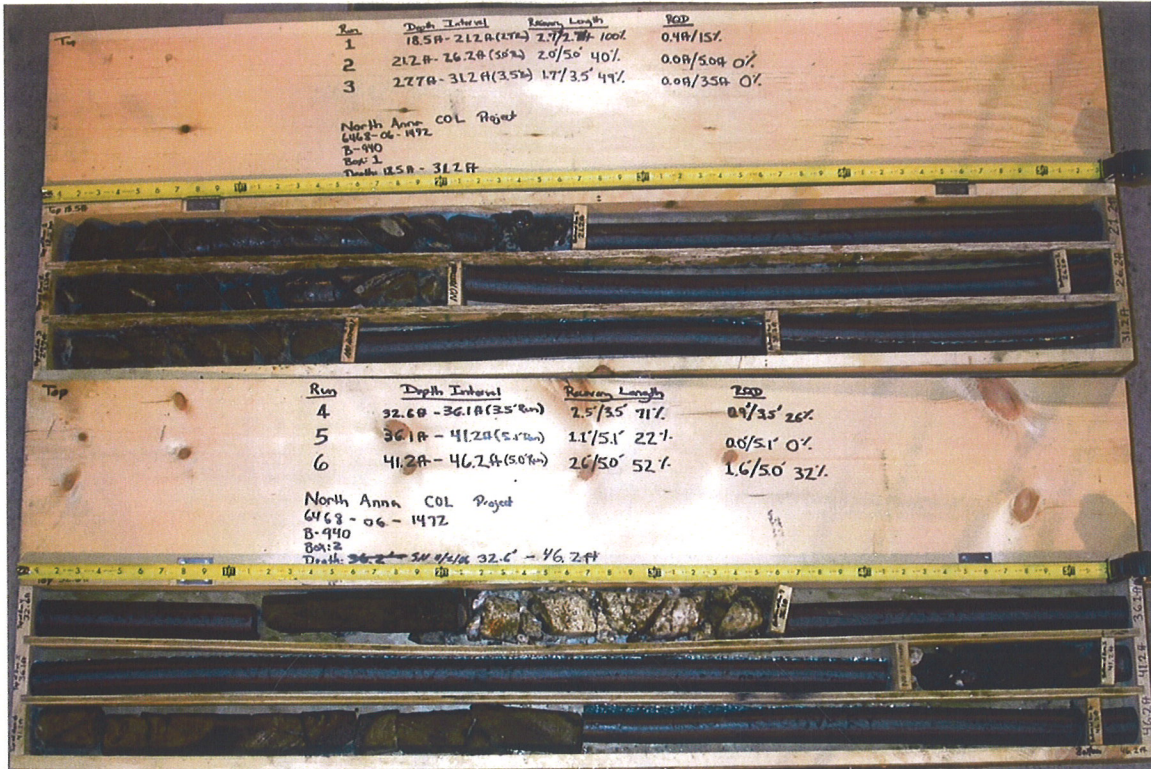 Top Run Depth Interval Recovery Length RQD
1 18.5ft - 21.2ft (2.7') 2.7/2.7ft 100% 0.4ft/15%
2 21.2ft - 26.2ft (5.0') 2.0'/5.0' 40% 0.0ft/5.0ft 0%
3 27.7ft - 31.2ft (3.5') 1.7'/3.5' 49% 0.0ft/3.5ft 0%
North Anna COL Project
6468-06-1472
B-940
Box: 1
Depth: 18.5ft - 31.2ft
Top 18.5ft
21.2ft
26.2ft
31.2ft
Top Run Depth Interval Recovery Length RQD
4 32.6ft - 36.1ft (3.5' Run) 2.5'/3.5' 71% 0.9'/3.5' 26%
5 36.1ft - 41.2ft (5.1' Run) 1.1'/5.1' 22% 0.0'/5.1' 0%
6 41.2ft - 46.2ft (5.0' Run) 2.6'/5.0' 52% 1.6/5.0' 32%
North Anna COL Project
6468-06-1472
B-940
Box: 2
Depth: 32.6' - 46.2ft
36.1ft
41.2ft
46.2ft
Bottom 46.2ft